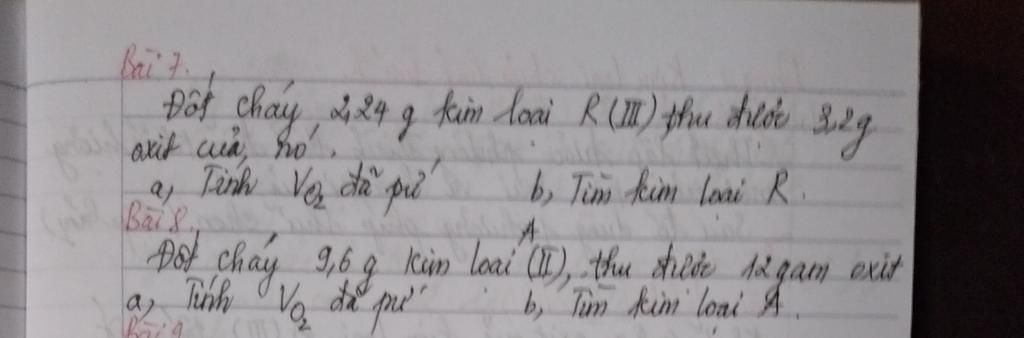 Bài 7.
Đốt cháy 2,24 g kim loại R (III) thu được 3,2g
oxit của nó.
a, Tính VO₂ đã pứ b, Tìm kim loại R.
Bài 8.
Đốt cháy 9,6 g kim loại A (II), thu được 12 gam oxit
a, Tính VO₂ đã pứ b, Tìm kim loại A.
Bài 9